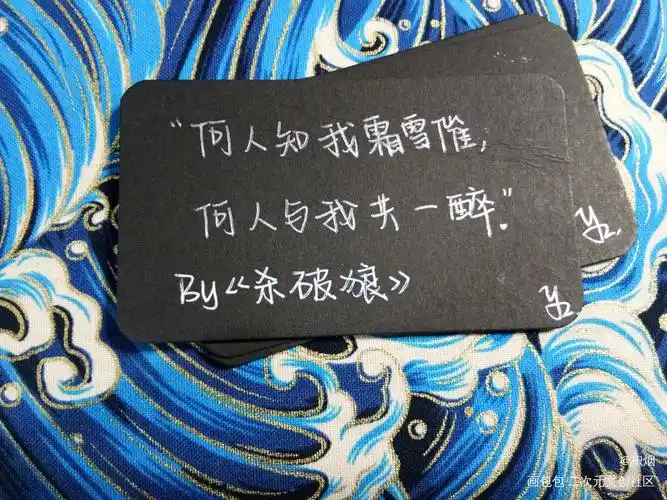 “何人知我霜雪催,
何人与我共一醉.”
By《杀破狼》
画包包·二次元文创社区